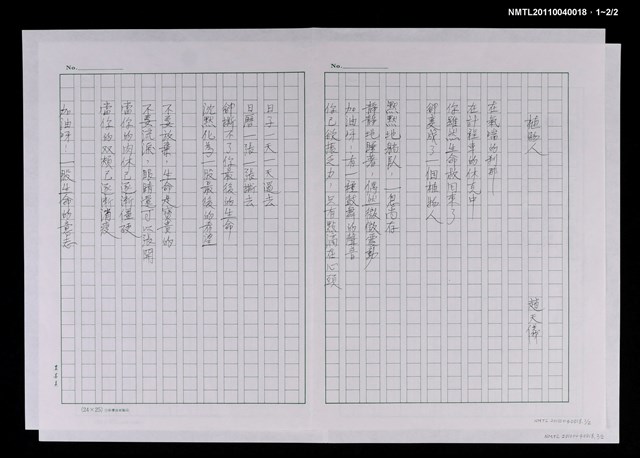 NMTL20110040018・1~2/2
No.
植物人
趙天儀
在氣喘的剎那
在計程車的休克中
你雖然生命救回來了
卻變成了一個植物人
默默地躺臥
靜靜地睡著，偶然微微震動
加油呀，有一種鼓舞的聲音
你已欲振乏力，只有點滴在心頭
No.
日子一天一天過去
日曆一張一張撕去
卻撕不了你最後的生命
沈默化為一股最後的希望
不要放棄，生命是寶貴的
不要流淚，眼睛還可以張開
當你的肉体已逐漸僵硬
當你的双頰已逐漸消瘦
加油呀，一股生命的意志
(24×25)
NMTL20110040018
NMTL20110040018